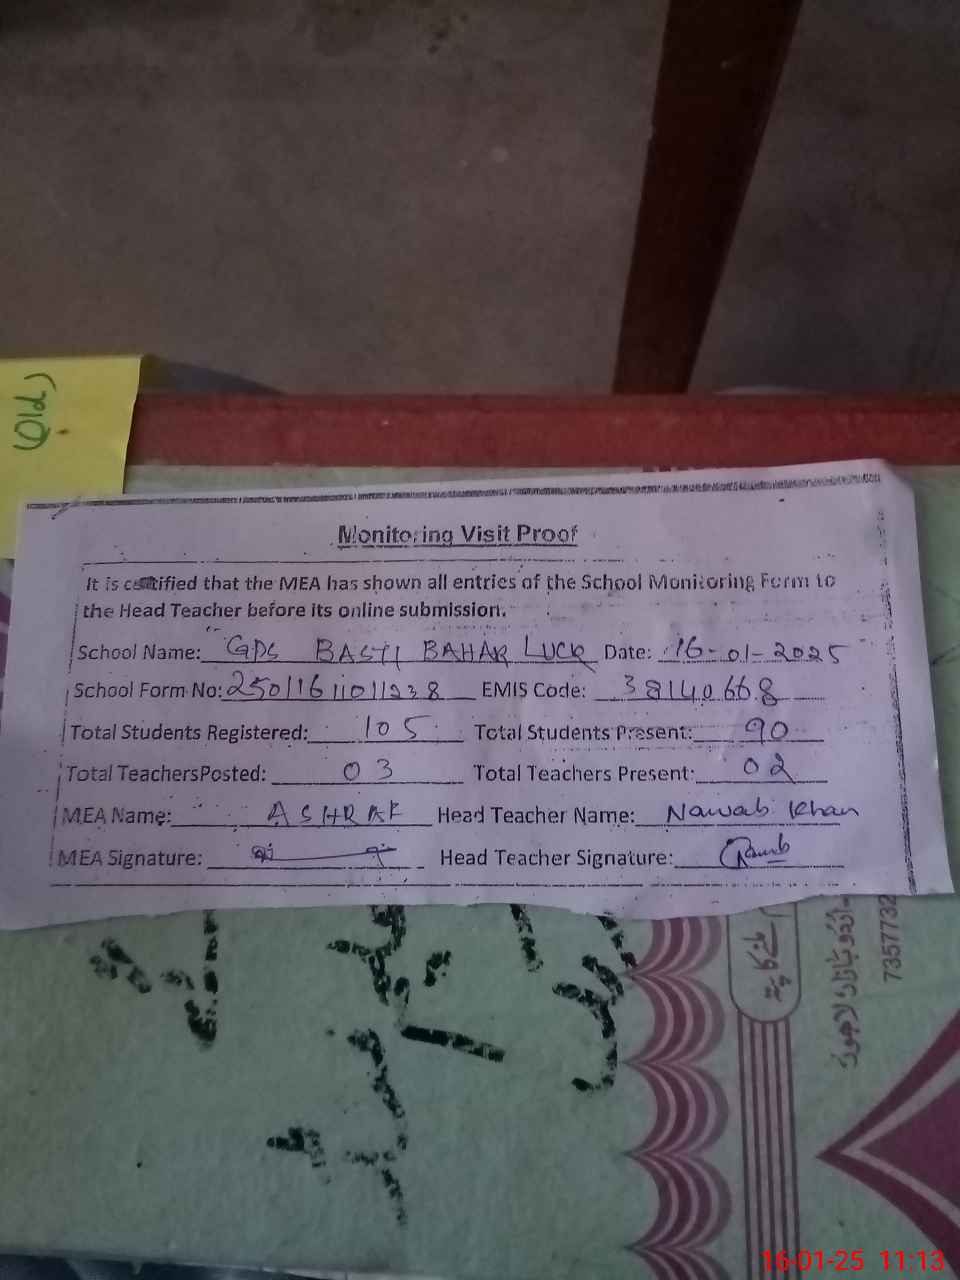 (Old)
Monitoring Visit Proof
It is certified that the MEA has shown all entries of the School Monitoring Form to
the Head Teacher before its online submission.
School Name: GPS BASTI BAHAR LUCK Date: 16-01-2025
School Form No: 25011611011238 EMIS Code: 38140668
Total Students Registered: 105 Total Students Present: 90
Total TeachersPosted: 03 Total Teachers Present: 02
MEA Name: ASHRAF Head Teacher Name: Nawab Khan
MEA Signature: Head Teacher Signature:
ملنے کا پتہ
اردو بازار لاہور
7357732
16-01-25 11:13